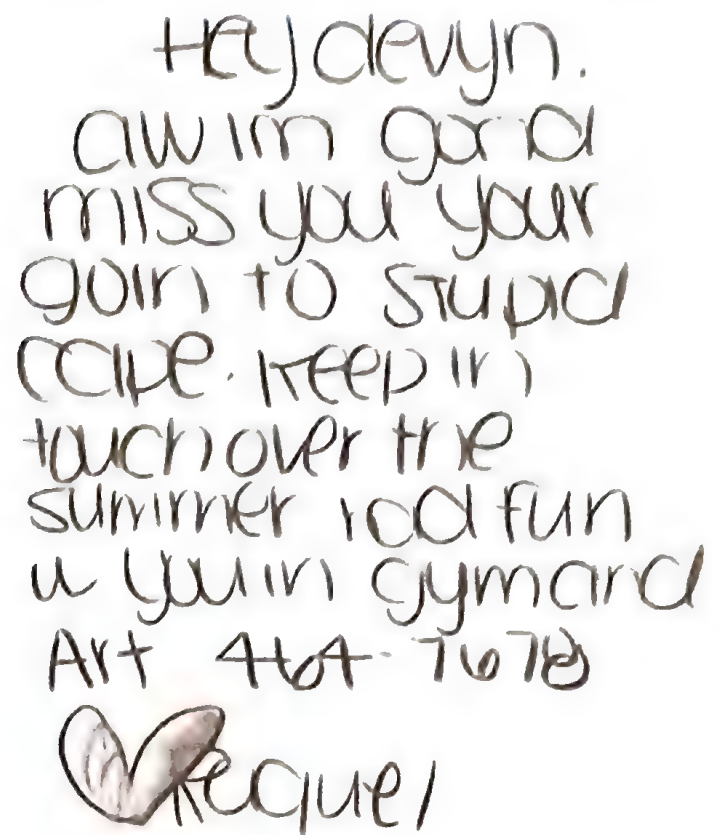 Hey devyn.
aw im gonna
miss you your
goin to stupid
cape. Keep in
touch over the
summer i had fun
w you in gym and
Art 464-7678
Requel